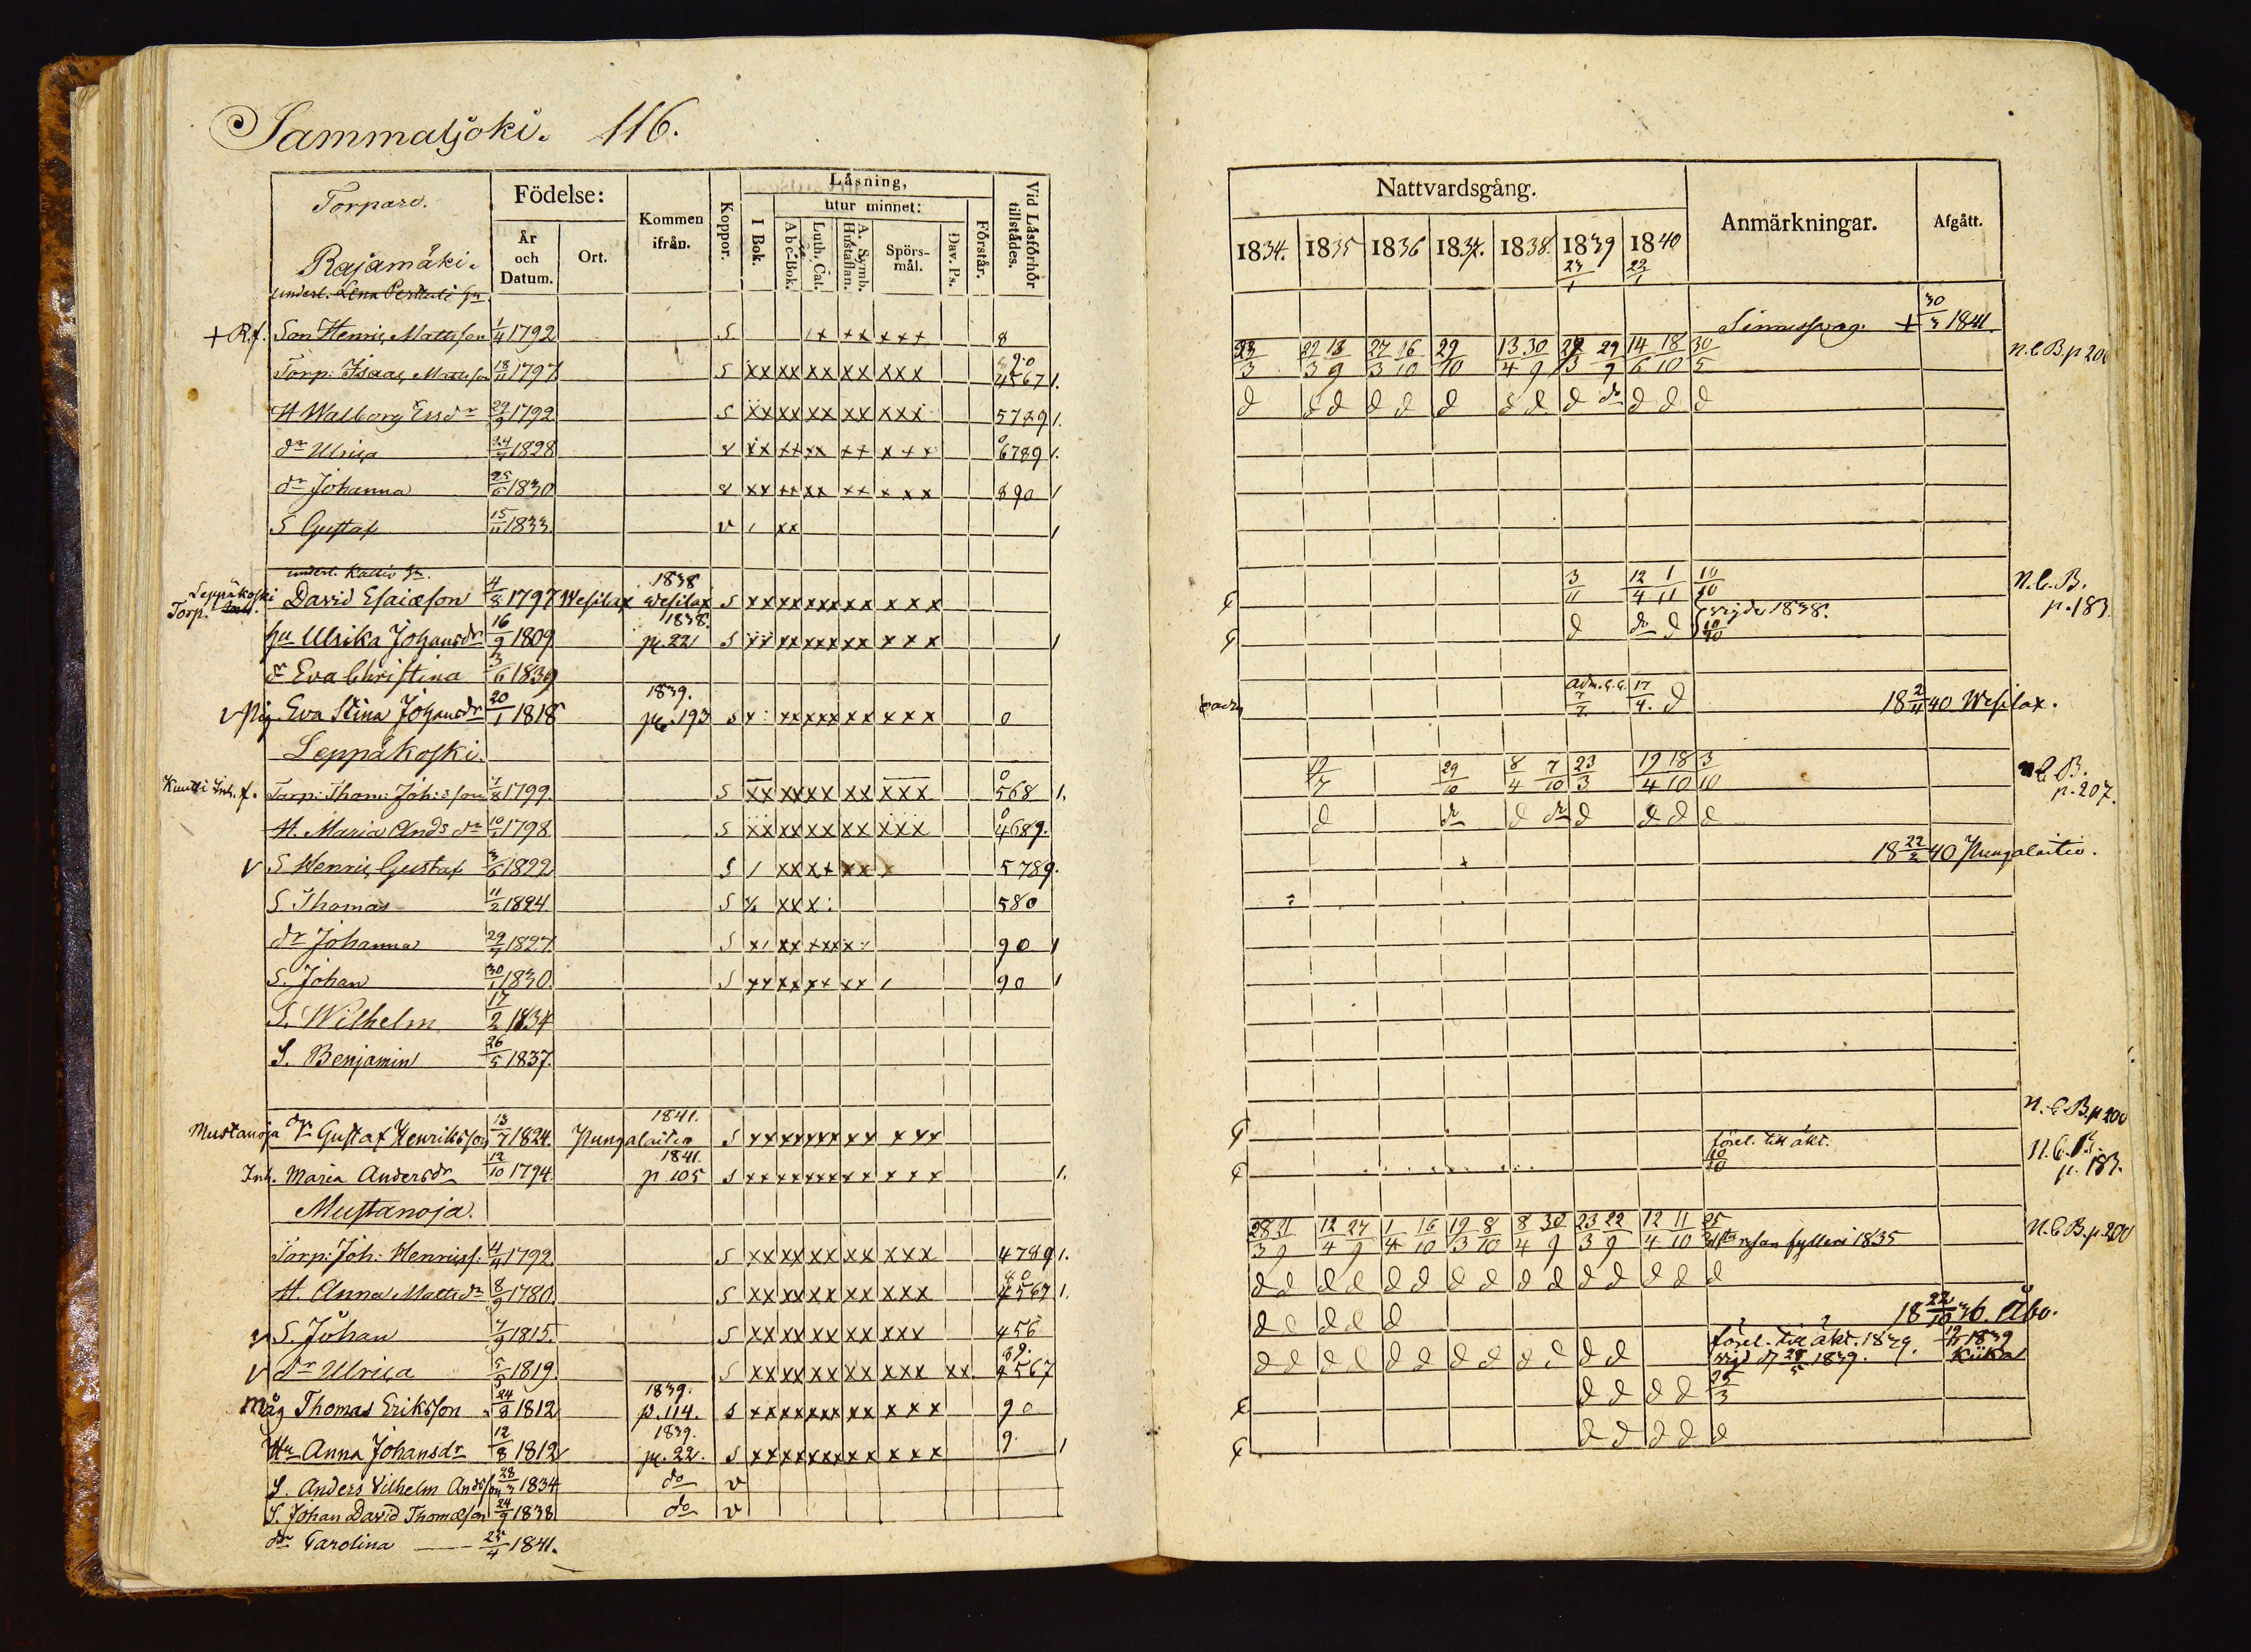 Sammaljoki. 116.
Torpare.
Rajamäki.
Födelse:
År och Datum.
Ort.
Kommen ifrån.
Koppor.
Läsning,
utur minnet:
I Bok.
Abc-Bok.
Luth. Cat.
A. Symb. Hustaflan.
Spörsmål.
Dav. Ps.
Förstår.
Vid Läsförhör tillstådes.
Son Henric Mattsson 1/4 1792 S 8
Torp: Isaac Mattsson 13/11 1797 S xx xx xx xx xxx 4567 1.
H Walborg Ersdr 29/9 1792 S xx xx xx xx xxx 5789 1.
dr Ulrica 1828 xx xx xx xx xxx 6789 1.
dr Johanna 25/6 1830 xx xx xx xx xxx 890 1
S Gustaf 15/11 1833. v 1 xx
Leppäkoski Torp. David Esaiæson 4/8 1797 Wesilax 1838 Wesilax S xx xx xx xx xxx
hu Ulrika Johansdr 16/9 1809 1838. p. 221 S xx xx xx xx xxx 1
dr Eva Christina 3/6 1839
v Pig Eva Stina Johansdr 20/1 1818 1839. p. 193 S x: xx xx xx xxx 0
Leppäkoski.
Torp: Thom: Joh:sson 7/8 1799. S xx xx xx xx xxx 568 1.
H. Maria Ands dr 1798. S xx xx xx xx xxx 4689.
v S Henric Gustaf 3/6 1822 S 1 xx xx xx x 5789.
S. Thomas 11/2 1824 S xx x: 580
dr Johanna 1827 S x1 xx xx x: 90 1
S. Johan 1830. S xx xx xx xx 1 90 1
S. Wilhelm 17/2 1834
S. Benjamin 26/5 1837.
Mustanoja Gustaf Henriksson 13/7 1824. Pungalaitio 1841. S xx xx xx xx xxx
Inh. Maria Andersdr 12/10 1794. 1841. p. 105 S xx xx xx xx xxx 1.
Mustanoja.
Torp: Joh: Henricss. 4/4 1792. S xx xx xx xx xxx 4789 1.
H. Anna Mattsdr 8/9 1780. S xx xx xx xx xxx 4567 1.
v S. Johan 7/9 1815. S xx xx xx xx xxx 456
v dr Ulrica 1819. S xx xx xx xx xxx xx. 4567
Måg Thomas Eriksson 24/8 1812 1839. p. 114. S xx xx xx xx xxx 90
Hu Anna Johansdr 12/8 1812 1839. p. 22. S xx xx xx xx xxx 9. 1
S. Anders Vilhelm Andsson 28/3 1834 do v
S. Johan David Thomæson 24/9 1838 do v
dr Carolina 25/4 1841.
Nattvardsgång.
Anmärkningar.
Afgått.
1834. 1835 1836 1837. 1838. 1839 1840
Sinnessvag. + 30/3 1841.
23/3 22/3 13/9 27/3 16/10 29/10 13/4 30/9 29/9 14/6 18/10 30/5 N.C.B. p 200
d d d d d d d d d do d d d
3/11 12/4 1/11 10/10 N.C.B. p. 183
d do d vigde 1838. 10/10
7/7 17/4. d 18 2/11 40 Wesilax.
29/10 8/4 7/10 23/3 19/4 18/10 3/10 N.C.B. p. 207.
d do d do d d d d
18 22/2 40 Pungalaitio.
N.C.B. p 200
förel. till äkt. 10/10 N.C.B. p. 183.
12/4 1/4 16/10 19/3 8/10 8/4 30/9 23/3 22/9 12/4 11/10 25/3 resan fylleri 1835 N.C.B. p. 200
d d d d d d d d d d d d d d d
d d d d d 18 22/10 36. Åbo.
d d d d d d d d d d d d förel. till äkt. 1839. vigd 1839. 1839 Kiika
d d d d 25/3
d d d d d